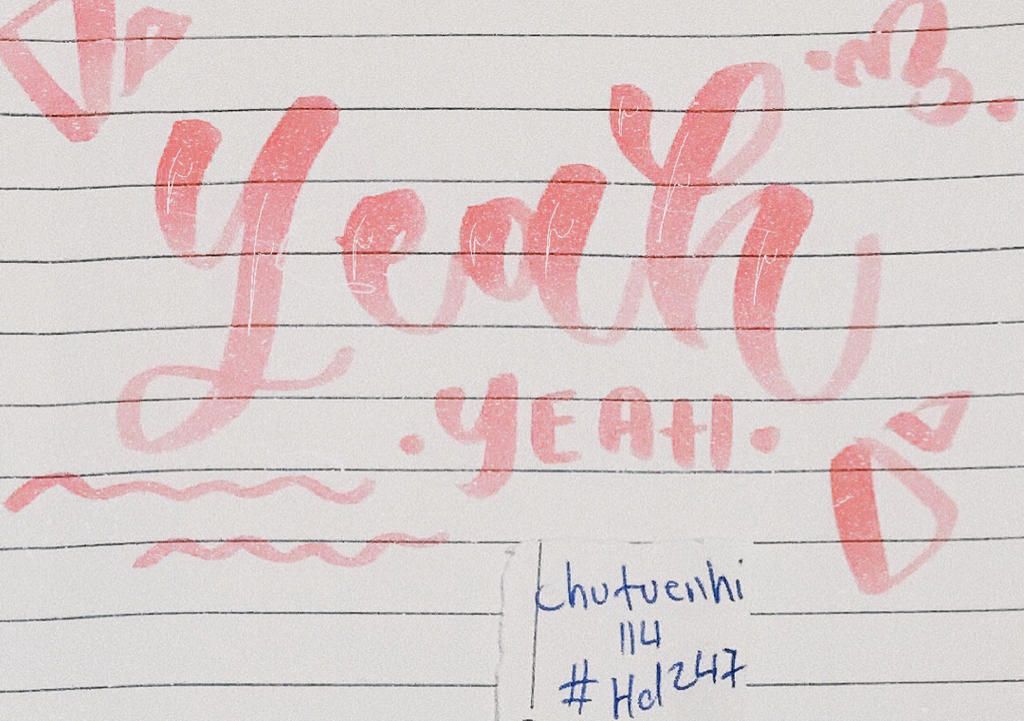 Yeah
YEAH
chutuenhi
114
#Hd247